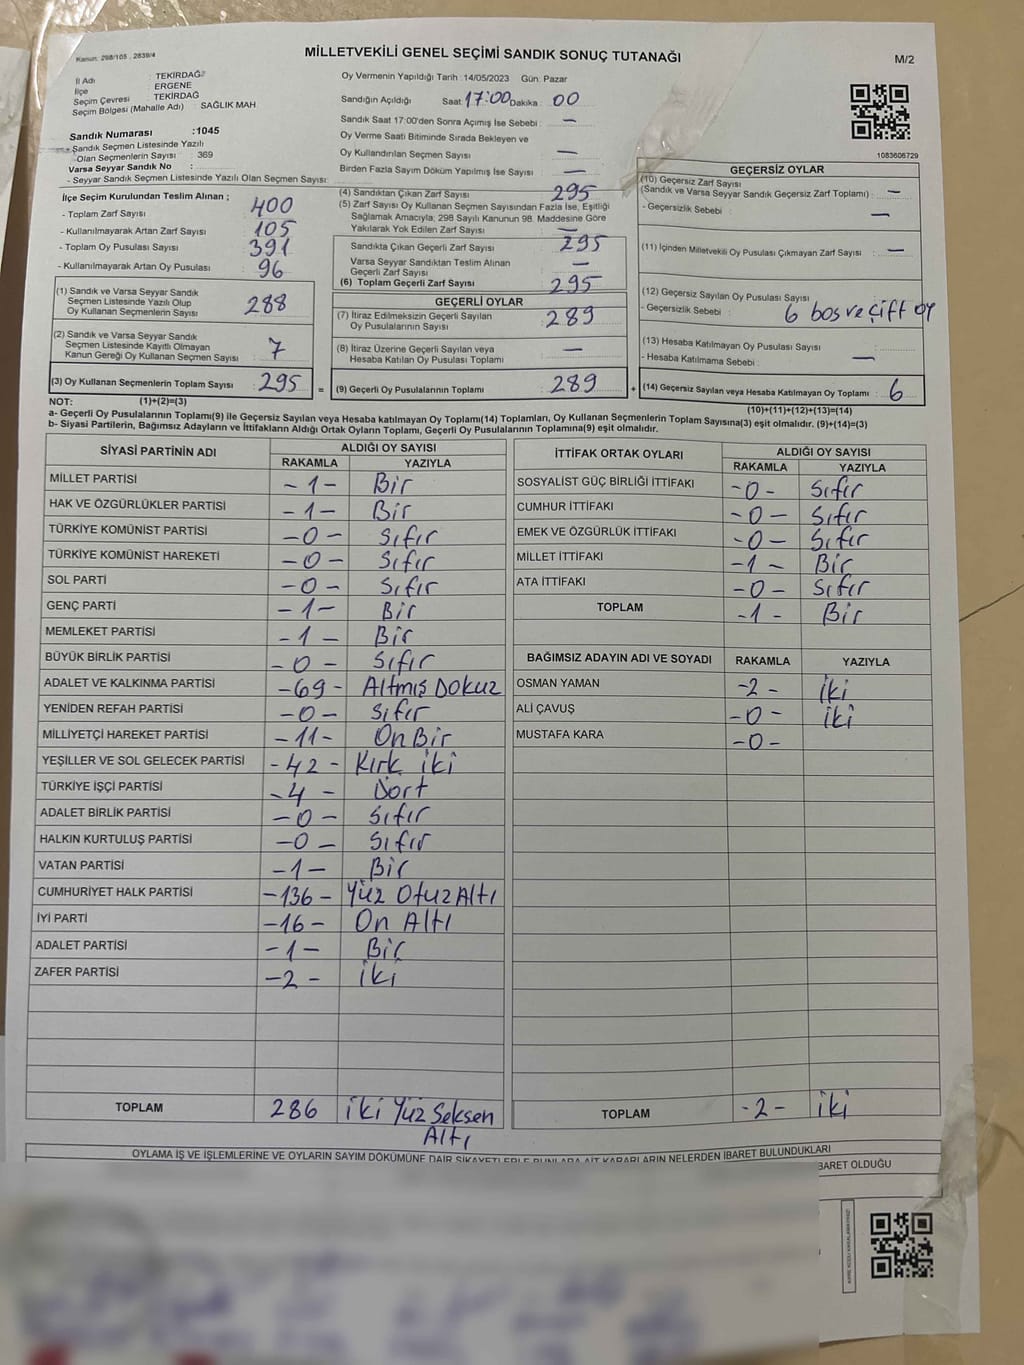 Kanun: 298/105 , 2839/4
MİLLETVEKİLİ GENEL SEÇİMİ SANDIK SONUÇ TUTANAĞI
M/2
İl Adı : TEKİRDAĞ
İlçe : ERGENE
Seçim Çevresi : TEKİRDAĞ
Seçim Bölgesi (Mahalle Adı) : SAĞLIK MAH
Sandık Numarası :1045
- Sandık Seçmen Listesinde Yazılı
Olan Seçmenlerin Sayısı : 369
Varsa Seyyar Sandık No :
- Seyyar Sandık Seçmen Listesinde Yazılı Olan Seçmen Sayısı:
İlçe Seçim Kurulundan Teslim Alınan ;
- Toplam Zarf Sayısı : 400
- Kullanılmayarak Artan Zarf Sayısı : 105
- Toplam Oy Pusulası Sayısı : 391
- Kullanılmayarak Artan Oy Pusulası : 96
(1) Sandık ve Varsa Seyyar Sandık
Seçmen Listesinde Yazılı Olup
Oy Kullanan Seçmenlerin Sayısı : 288
(2) Sandık ve Varsa Seyyar Sandık
Seçmen Listesinde Kayıtlı Olmayan
Kanun Gereği Oy Kullanan Seçmen Sayısı : 7
(3) Oy Kullanan Seçmenlerin Toplam Sayısı : 295
Oy Vermenin Yapıldığı Tarih : 14/05/2023 Gün: Pazar
Sandığın Açıldığı Saat: 17:00 Dakika 00
Sandık Saat 17:00'den Sonra Açımış İse Sebebi : —
Oy Verme Saati Bitiminde Sırada Bekleyen ve
Oy Kullandırılan Seçmen Sayısı : —
Birden Fazla Sayım Döküm Yapılmış İse Sayısı : —
(4) Sandıktan Çıkan Zarf Sayısı : 295
(5) Zarf Sayısı Oy Kullanan Seçmen Sayısından Fazla İse, Eşitliği
Sağlamak Amacıyla; 298 Sayılı Kanunun 98. Maddesine Göre
Yakılarak Yok Edilen Zarf Sayısı : —
Sandıkta Çıkan Geçerli Zarf Sayısı : 295
Varsa Seyyar Sandıktan Teslim Alınan
Geçerli Zarf Sayısı : —
(6) Toplam Geçerli Zarf Sayısı : 295
GEÇERLİ OYLAR
(7) İtiraz Edilmeksizin Geçerli Sayılan
Oy Pusulalarının Sayısı : 289
(8) İtiraz Üzerine Geçerli Sayılan veya
Hesaba Katılan Oy Pusulası Toplamı : —
= (9) Geçerli Oy Pusulalarının Toplamı : 289
1083606729
GEÇERSİZ OYLAR
(10) Geçersiz Zarf Sayısı
(Sandık ve Varsa Seyyar Sandık Geçersiz Zarf Toplamı) : —
- Geçersizlik Sebebi : —
(11) İçinden Milletvekili Oy Pusulası Çıkmayan Zarf Sayısı : —
(12) Geçersiz Sayılan Oy Pusulası Sayısı :
- Geçersizlik Sebebi : 6 bos ve çift oy
(13) Hesaba Katılmayan Oy Pusulası Sayısı :
- Hesaba Katılmama Sebebi : —
+ (14) Geçersiz Sayılan veya Hesaba Katılmayan Oy Toplamı : 6
NOT: (1)+(2)=(3)
(10)+(11)+(12)+(13)=(14)
a- Geçerli Oy Pusulalarının Toplamı(9) ile Geçersiz Sayılan veya Hesaba katılmayan Oy Toplamı(14) Toplamları, Oy Kullanan Seçmenlerin Toplam Sayısına(3) eşit olmalıdır. (9)+(14)=(3)
b- Siyasi Partilerin, Bağımsız Adayların ve İttifakların Aldığı Ortak Oyların Toplamı, Geçerli Oy Pusulalarının Toplamına(9) eşit olmalıdır.
SİYASİ PARTİNİN ADI ALDIĞI OY SAYISI
RAKAMLA YAZIYLA
MİLLET PARTİSİ -1- Bir
HAK VE ÖZGÜRLÜKLER PARTİSİ -1- Bir
TÜRKİYE KOMÜNİST PARTİSİ -0- Sıfır
TÜRKİYE KOMÜNİST HAREKETİ -0- Sıfır
SOL PARTİ -0- Sıfır
GENÇ PARTİ -1- Bir
MEMLEKET PARTİSİ -1- Bir
BÜYÜK BİRLİK PARTİSİ -0- Sıfır
ADALET VE KALKINMA PARTİSİ -69- Altmış Dokuz
YENİDEN REFAH PARTİSİ -0- Sıfır
MİLLİYETÇİ HAREKET PARTİSİ -11- On Bir
YEŞİLLER VE SOL GELECEK PARTİSİ -42- Kırk iki
TÜRKİYE İŞÇİ PARTİSİ -4- Dört
ADALET BİRLİK PARTİSİ -0- Sıfır
HALKIN KURTULUŞ PARTİSİ -0- Sıfır
VATAN PARTİSİ -1- Bir
CUMHURİYET HALK PARTİSİ -136- Yüz Otuz Altı
İYİ PARTİ -16- On Altı
ADALET PARTİSİ -1- Bir
ZAFER PARTİSİ -2- iki
TOPLAM 286 iki Yüz Seksen
Altı
İTTİFAK ORTAK OYLARI ALDIĞI OY SAYISI
RAKAMLA YAZIYLA
SOSYALİST GÜÇ BİRLİĞİ İTTİFAKI -0- Sıfır
CUMHUR İTTİFAKI -0- Sıfır
EMEK VE ÖZGÜRLÜK İTTİFAKI -0- Sıfır
MİLLET İTTİFAKI -1- Bir
ATA İTTİFAKI -0- Sıfır
TOPLAM -1- Bir
BAĞIMSIZ ADAYIN ADI VE SOYADI RAKAMLA YAZIYLA
OSMAN YAMAN -2- iki
ALİ ÇAVUŞ -0- iki
MUSTAFA KARA -0-
TOPLAM -2- iki
OYLAMA İŞ VE İŞLEMLERİNE VE OYLARIN SAYIM DÖKÜMÜNE DAİR ŞİKAYETLERLE BUNLARA AİT KARARLARIN NELERDEN İBARET BULUNDUKLARI
BARET OLDUĞU